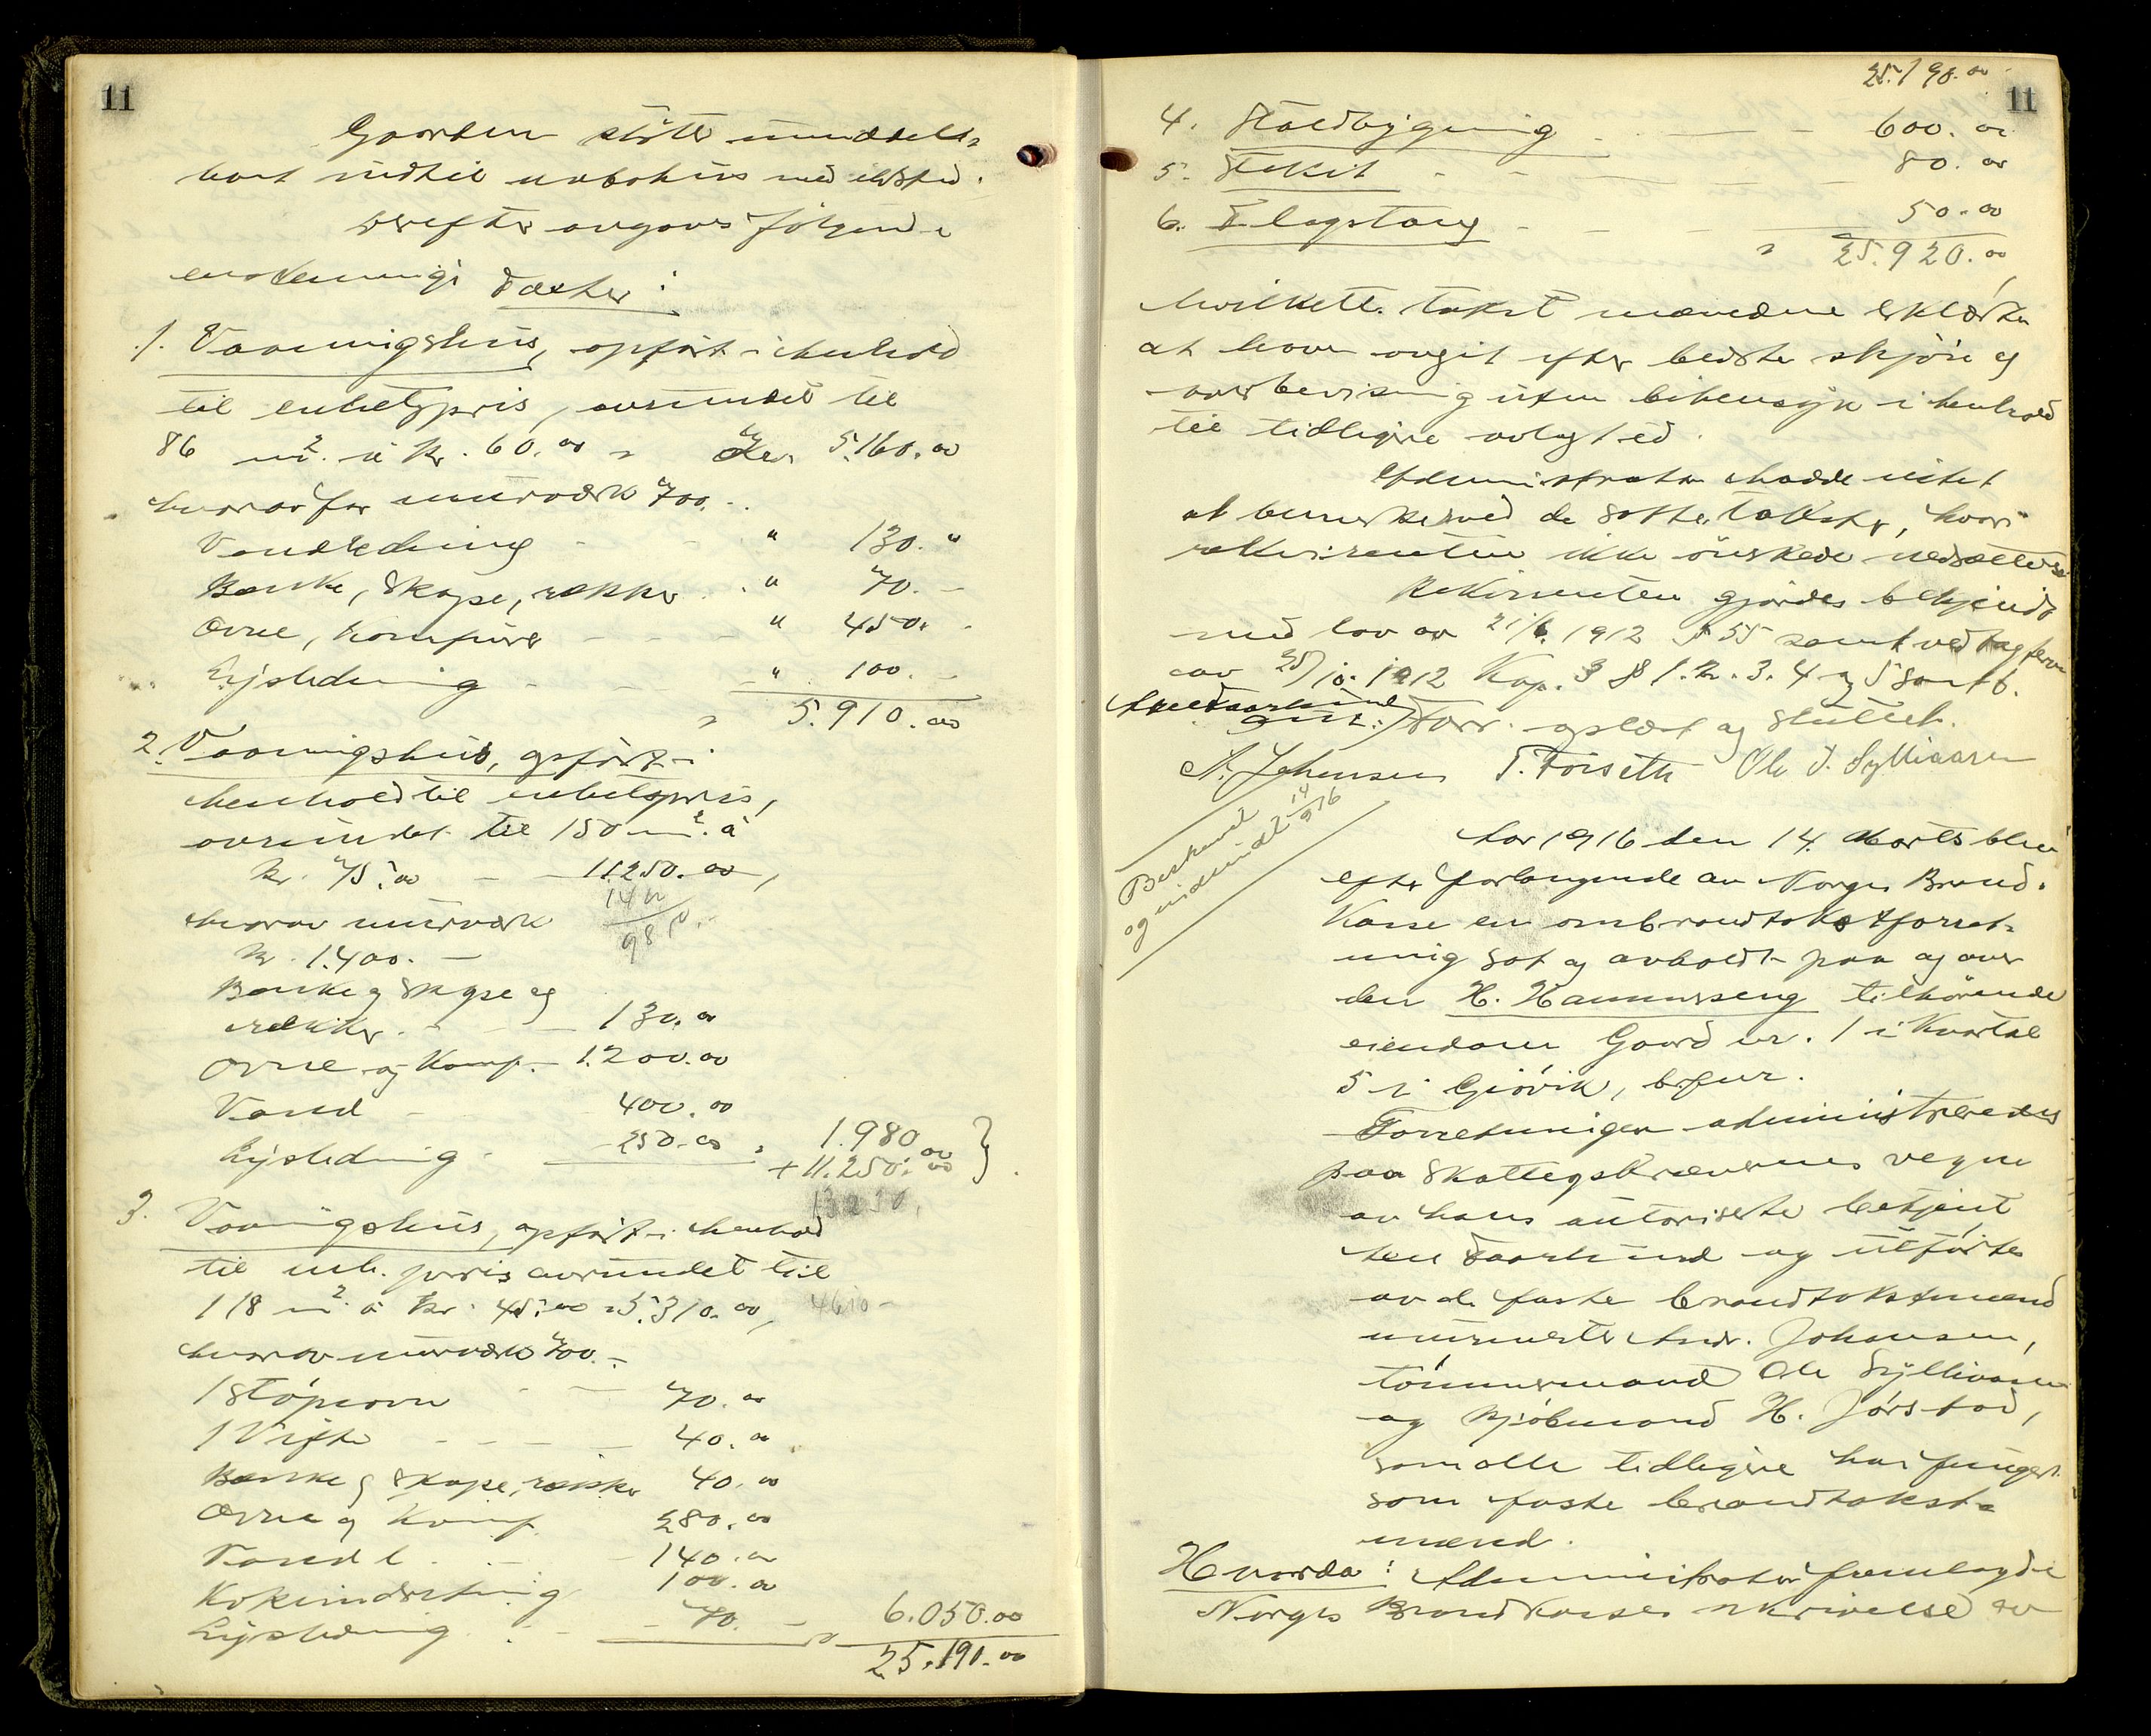 11
Gaarden støter umiddel-
bart indtil nabohus med ildsted.
Derefter avgaves følgende
enstemmige Takster:
1. Vaaningshus, opført i henhold
til enhetspris, avrundet til
86 m². à kr. 60.00 = Kr. 5.160.00
hvorav for murværk 700.-
Vandledning - - " 130. "
Bænke, Skape, rækker . " 70. -
Ovne, komfurer - - - " 450. -
Lysledning - - - - " 100. -
= 5.910.00
2. Vaaningshus, opført i
henhold til enhetspris,
avrundet til 150 m². à
kr. 75.00 - - 11.250.00,
hvorav murværk
1400
9850.-
kr. 1.400. -
Bænke og Skape og
rækker. - - - 130.00
Ovne og Komf. - 1.200.00
Vand - 400.00
Lysledning - 250.00 = 1.980.00
+ 11.250.00 }
13230,
3. Vaaningshus, opført i henhold
til enh. pris avrundet til
118 m². à kr. 45.00 = 5.310.00, 4610 -
hvorav murværk 700. -
1 Støpeovn - - 70.00
1 Vifte - - - - 40.00
Bænke og Skape, rækker 40.00
Ovne og Komf. 280.00
Vandl. . - - 140.00
Kokeindretning 100.00
Lysledning . - - 70. - = 6.050.00
25.190.00
11
25.190.00
4. Staldbygning - - - - 600.00
5. Stakit - - - - - 80.00
6. Flagstang - - - 50.00
= 25.920.00
hvilkette takst mændene erklærte
at have avgit efter bedste skjøn og
overbevisning uten bihensyn i henhold
til tidligere avlagt ed.
Administrator hadde intet
at bemerke ved de satte takster, hvori
rekvirenten ikke ønskede nedsættelse.
Rekvirenten gjordes bekjendt
med lov av 21/6. 1912 § 55 samt vedtægterne
av 25/10. 1912 Kap. 3 § 1. 2. 3. 4 og 5 samt 6.
Forr. oplæst og sluttet.
A. Johansen T. Forseth Ole J. Sylliaasen
Beskrevet
og indsendt 14/3 916
Aar 1916 den 14. Marts blev
efter forlangende av Norges Brand-
kasse en ombrandtakstforret-
ning sat og avholdt paa og over
den H. Hammerseng tilhørende
eiendom Gaard nr. 1 i Kvartal
5 i Gjøvik, b.
Forretningen administreredes
paa Skattegskrævernes vegne
av hans autoriserte betjent
Taarlund og utførtes
av de faste brandtakstmænd
murmester Andr. Johansen,
tømmermand Ole Sylliaasen
og kjøbmand H. Jørstad,
som alle tidligere har fungert
som faste brandtakst-
mænd.
Hvorda: Administrator fremlagde
Norges Brandkasses skrivelse av